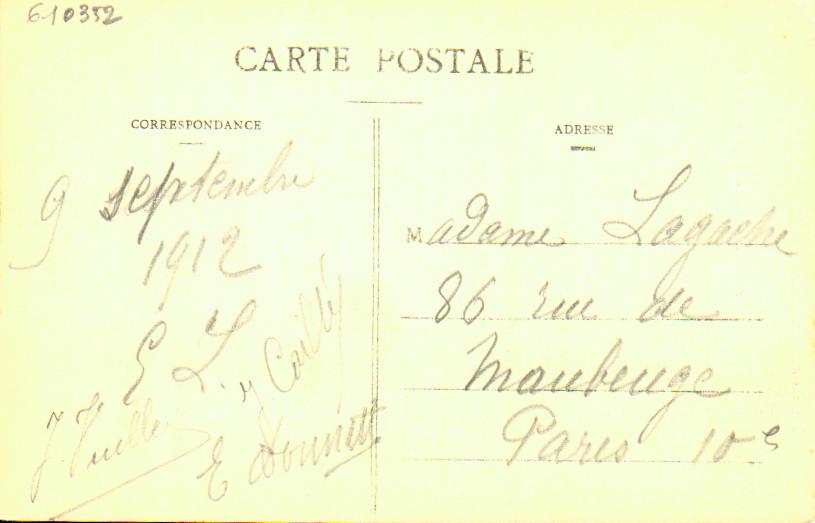 610352
CARTE POSTALE
CORRESPONDANCE
9 septembre
1912
E L.
ADRESSE
Madame Lagache
86 rue de
Maubeuge
Paris 10e